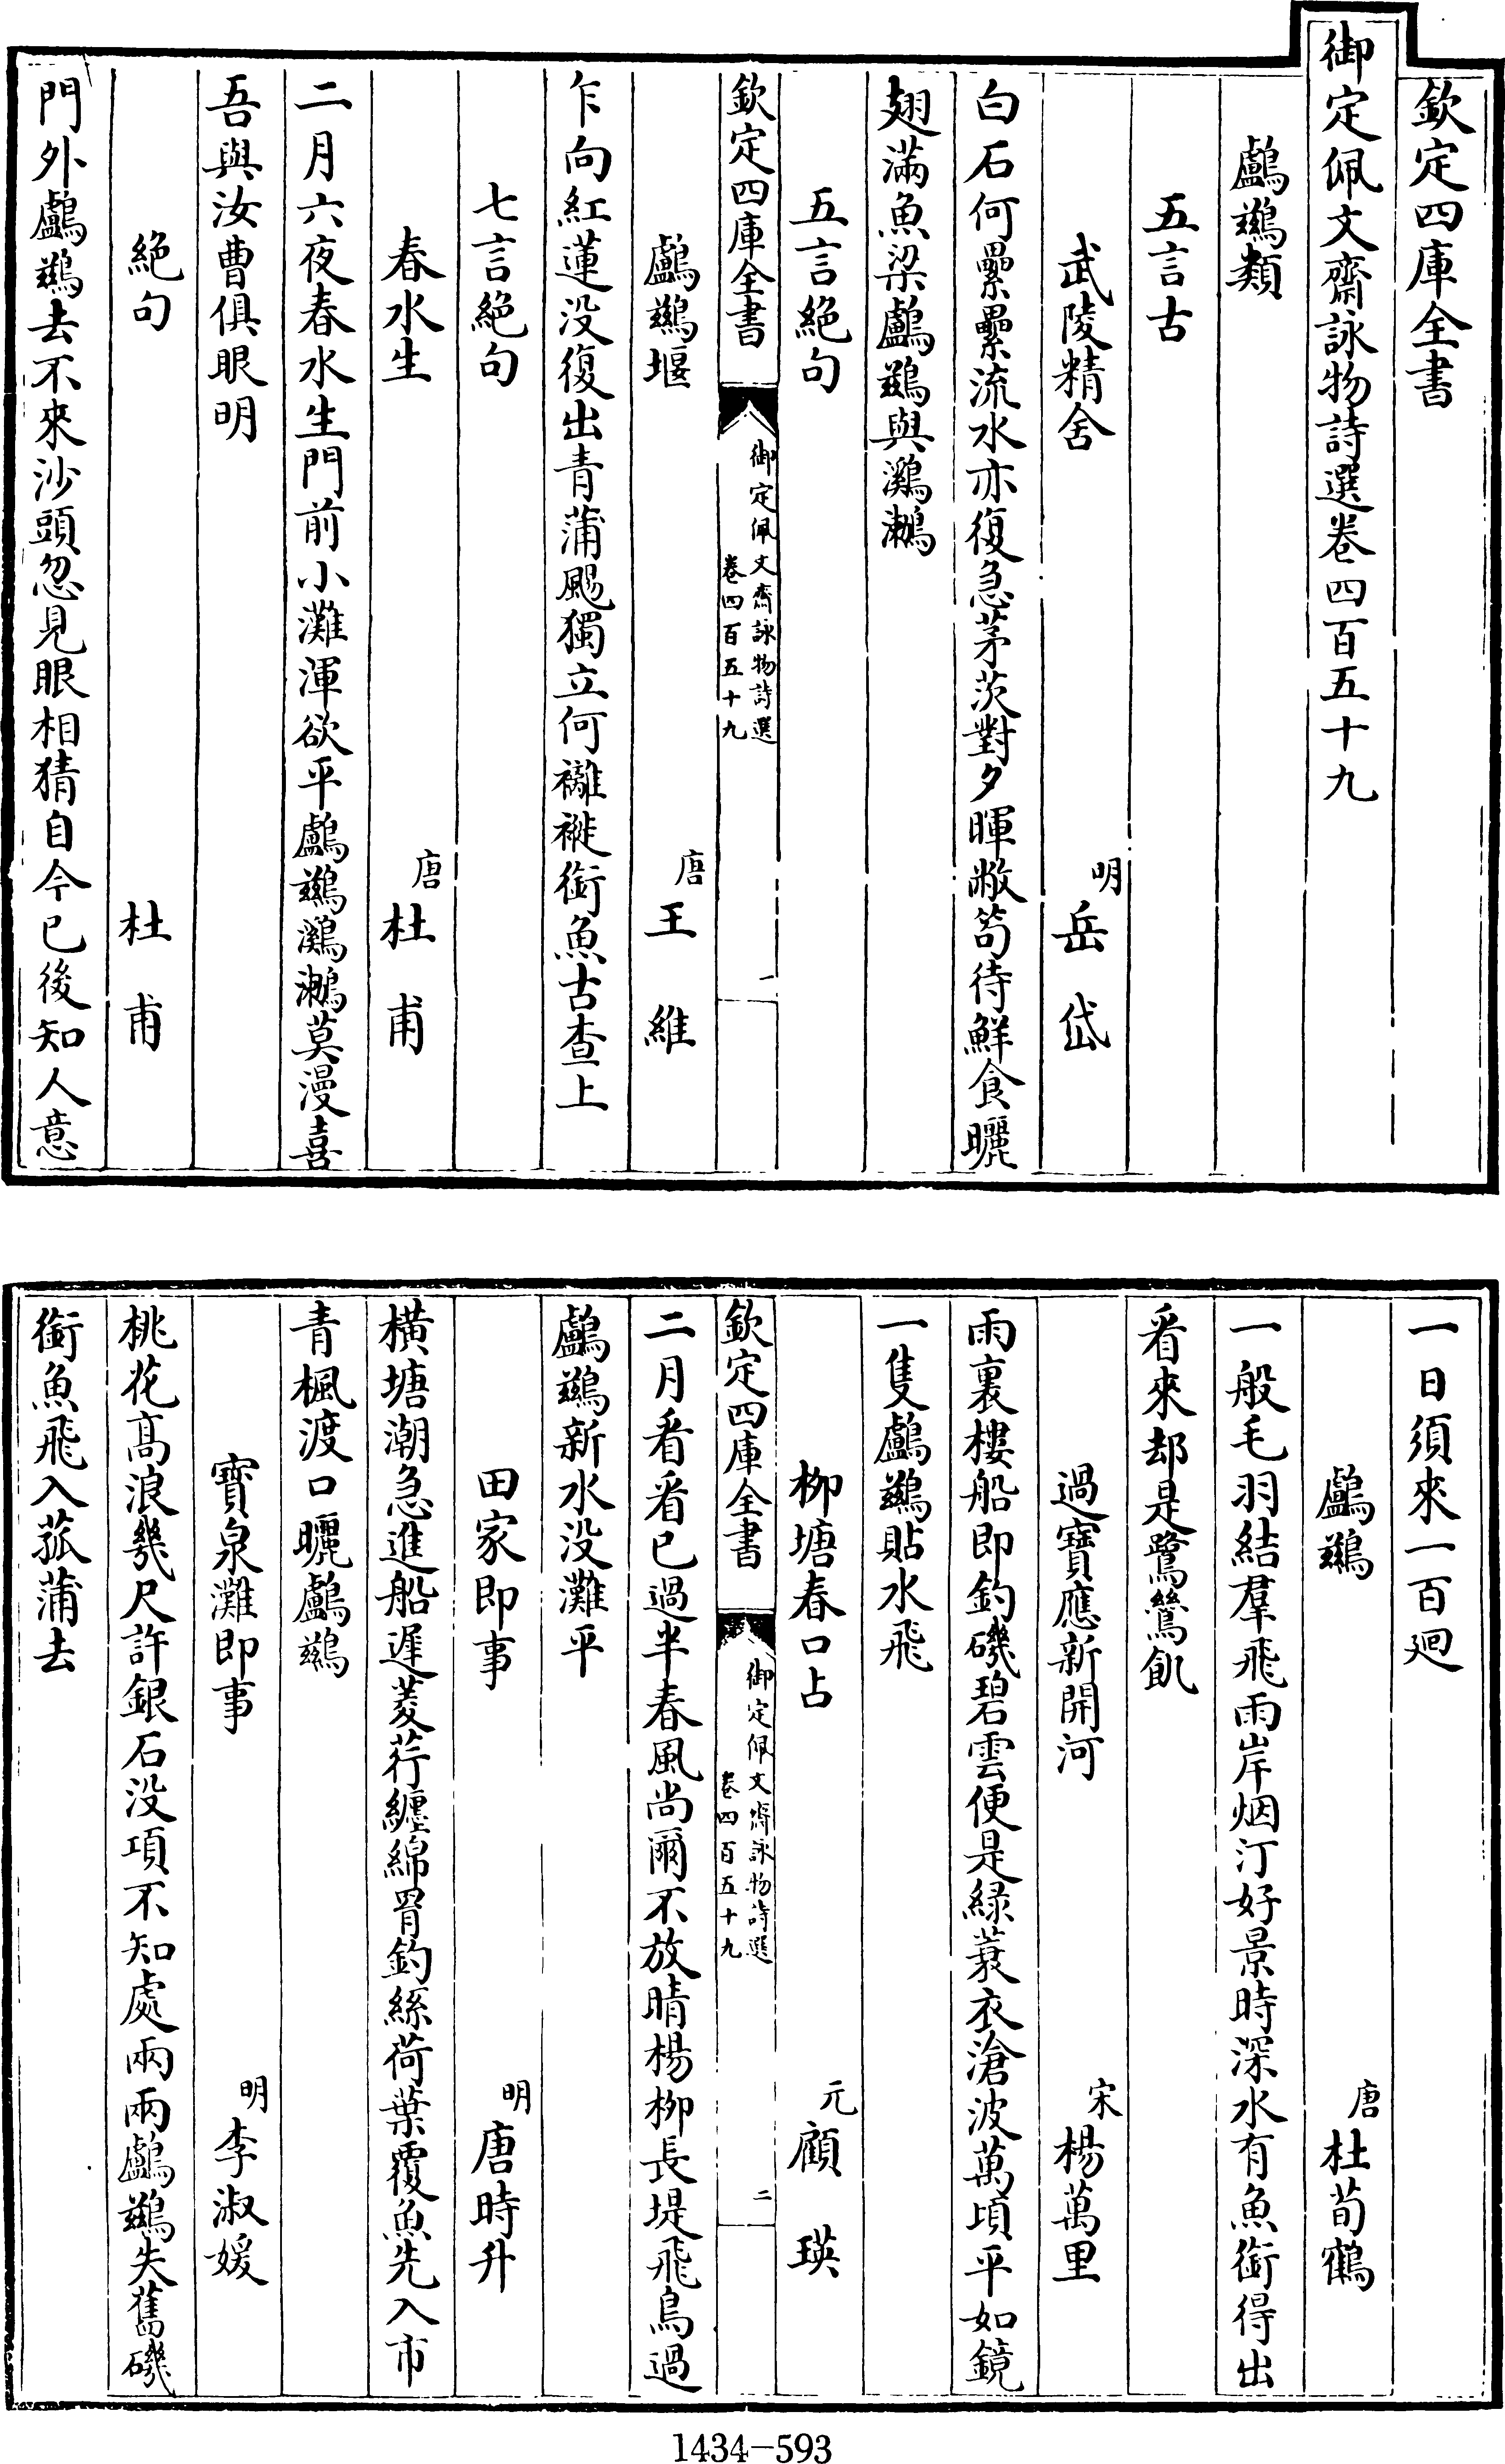 欽定四庫全書
御定佩文齋詠物詩選卷四百五十九
鸕鷀類
五言古
武陵精舍
明
岳岱
白石何纍纍流水亦復急茅茨對夕暉敝笱待鮮食曬
翅滿魚梁鸕鷀與鸂鶒
五言絕句
欽定四庫全書
御定佩文齋詠物詩選
卷四百五十九
一
鸕鷀堰
唐
王維
乍向紅蓮没復出青蒲颺獨立何䙰褷銜魚古查上
七言絕句
春水生
唐
杜甫
二月六夜春水生門前小灘渾欲平鸕鷀鸂鶒莫漫喜
吾與汝曹俱眼明
絕句
杜甫
門外鸕鷀去不來沙頭忽見眼相猜自今已後知人意
一日須來一百廻
鸕鷀
唐
杜荀鶴
一般毛羽結羣飛雨岸烟汀好景時深水有魚銜得出
看來却是鷺鷥飢
過寶應新開河
宋
楊萬里
雨裏樓船即釣磯碧雲便是緑蓑衣滄波萬頃平如鏡
一隻鸕鷀貼水飛
柳塘春口占
元
顧瑛
欽定四庫全書
御定佩文齋詠物詩選
卷四百五十九
二
二月看看已過半春風尚爾不放晴楊柳長堤飛鳥過
鸕鷀新水没灘平
田家即事
明
唐時升
横塘潮急進船遲菱荇纏綿罥釣絲荷葉覆魚先入市
青楓渡口曬鸕鷀
寶泉灘即事
明
李淑媛
桃花高浪幾尺許銀石没項不知處兩兩鸕鷀失舊磯
銜魚飛入菰蒲去
1434-593